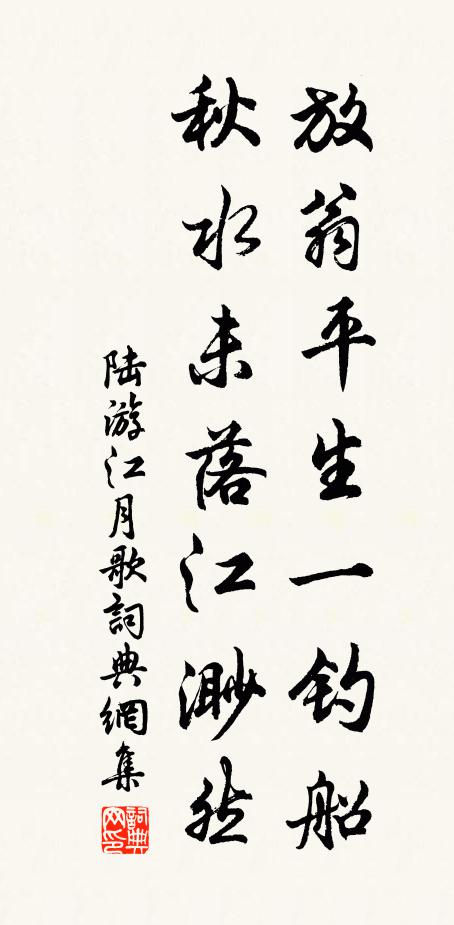 放翁平生一钓船
秋水未落江渺然
陆游江月歌詞典網集
詞典网印